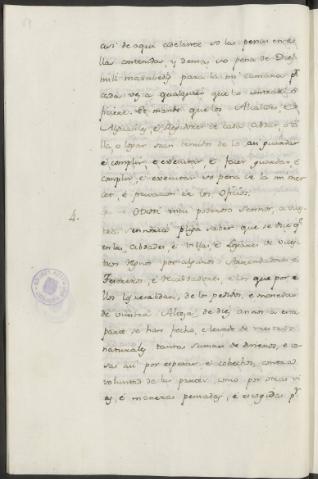 asi de aqui adelante so las penas en e
llas contenidas, y demas so pena de Diez
mill maravedis para la mi camara pr
cada vez a qualquier que lo contrario
ficiere. Et mando que los Alcaldes, e
Alguaciles, e Regidores de cada cibdad, o vi
lla, o logar sean tenudos de lo asi guardar
e complir, e executar e facer guardar, e
complir, e executar so pena de la mi mer
cet, e privacion de los Oficios.
4. Otrosi mui poderoso Sennor, a vues
tra sennoria plega saber que se dize qe
en las cibdades, e villas, e Logares de vues
tros Regnos por algunos Arrendadores e
Tesoreros, e Recabdadores, e los que por e
llos lo recabdan, de los pedidos, e monedas
de vuestra Alteza de diez annos a esta
parte se han fecho, e levado de vuestros
naturales tantas sumas de dineros, e co
sas asi por espera, e cohechos, contra
voluntad de las partes, como por otras vi
as, e maneras pensadas, e esquisitas pr